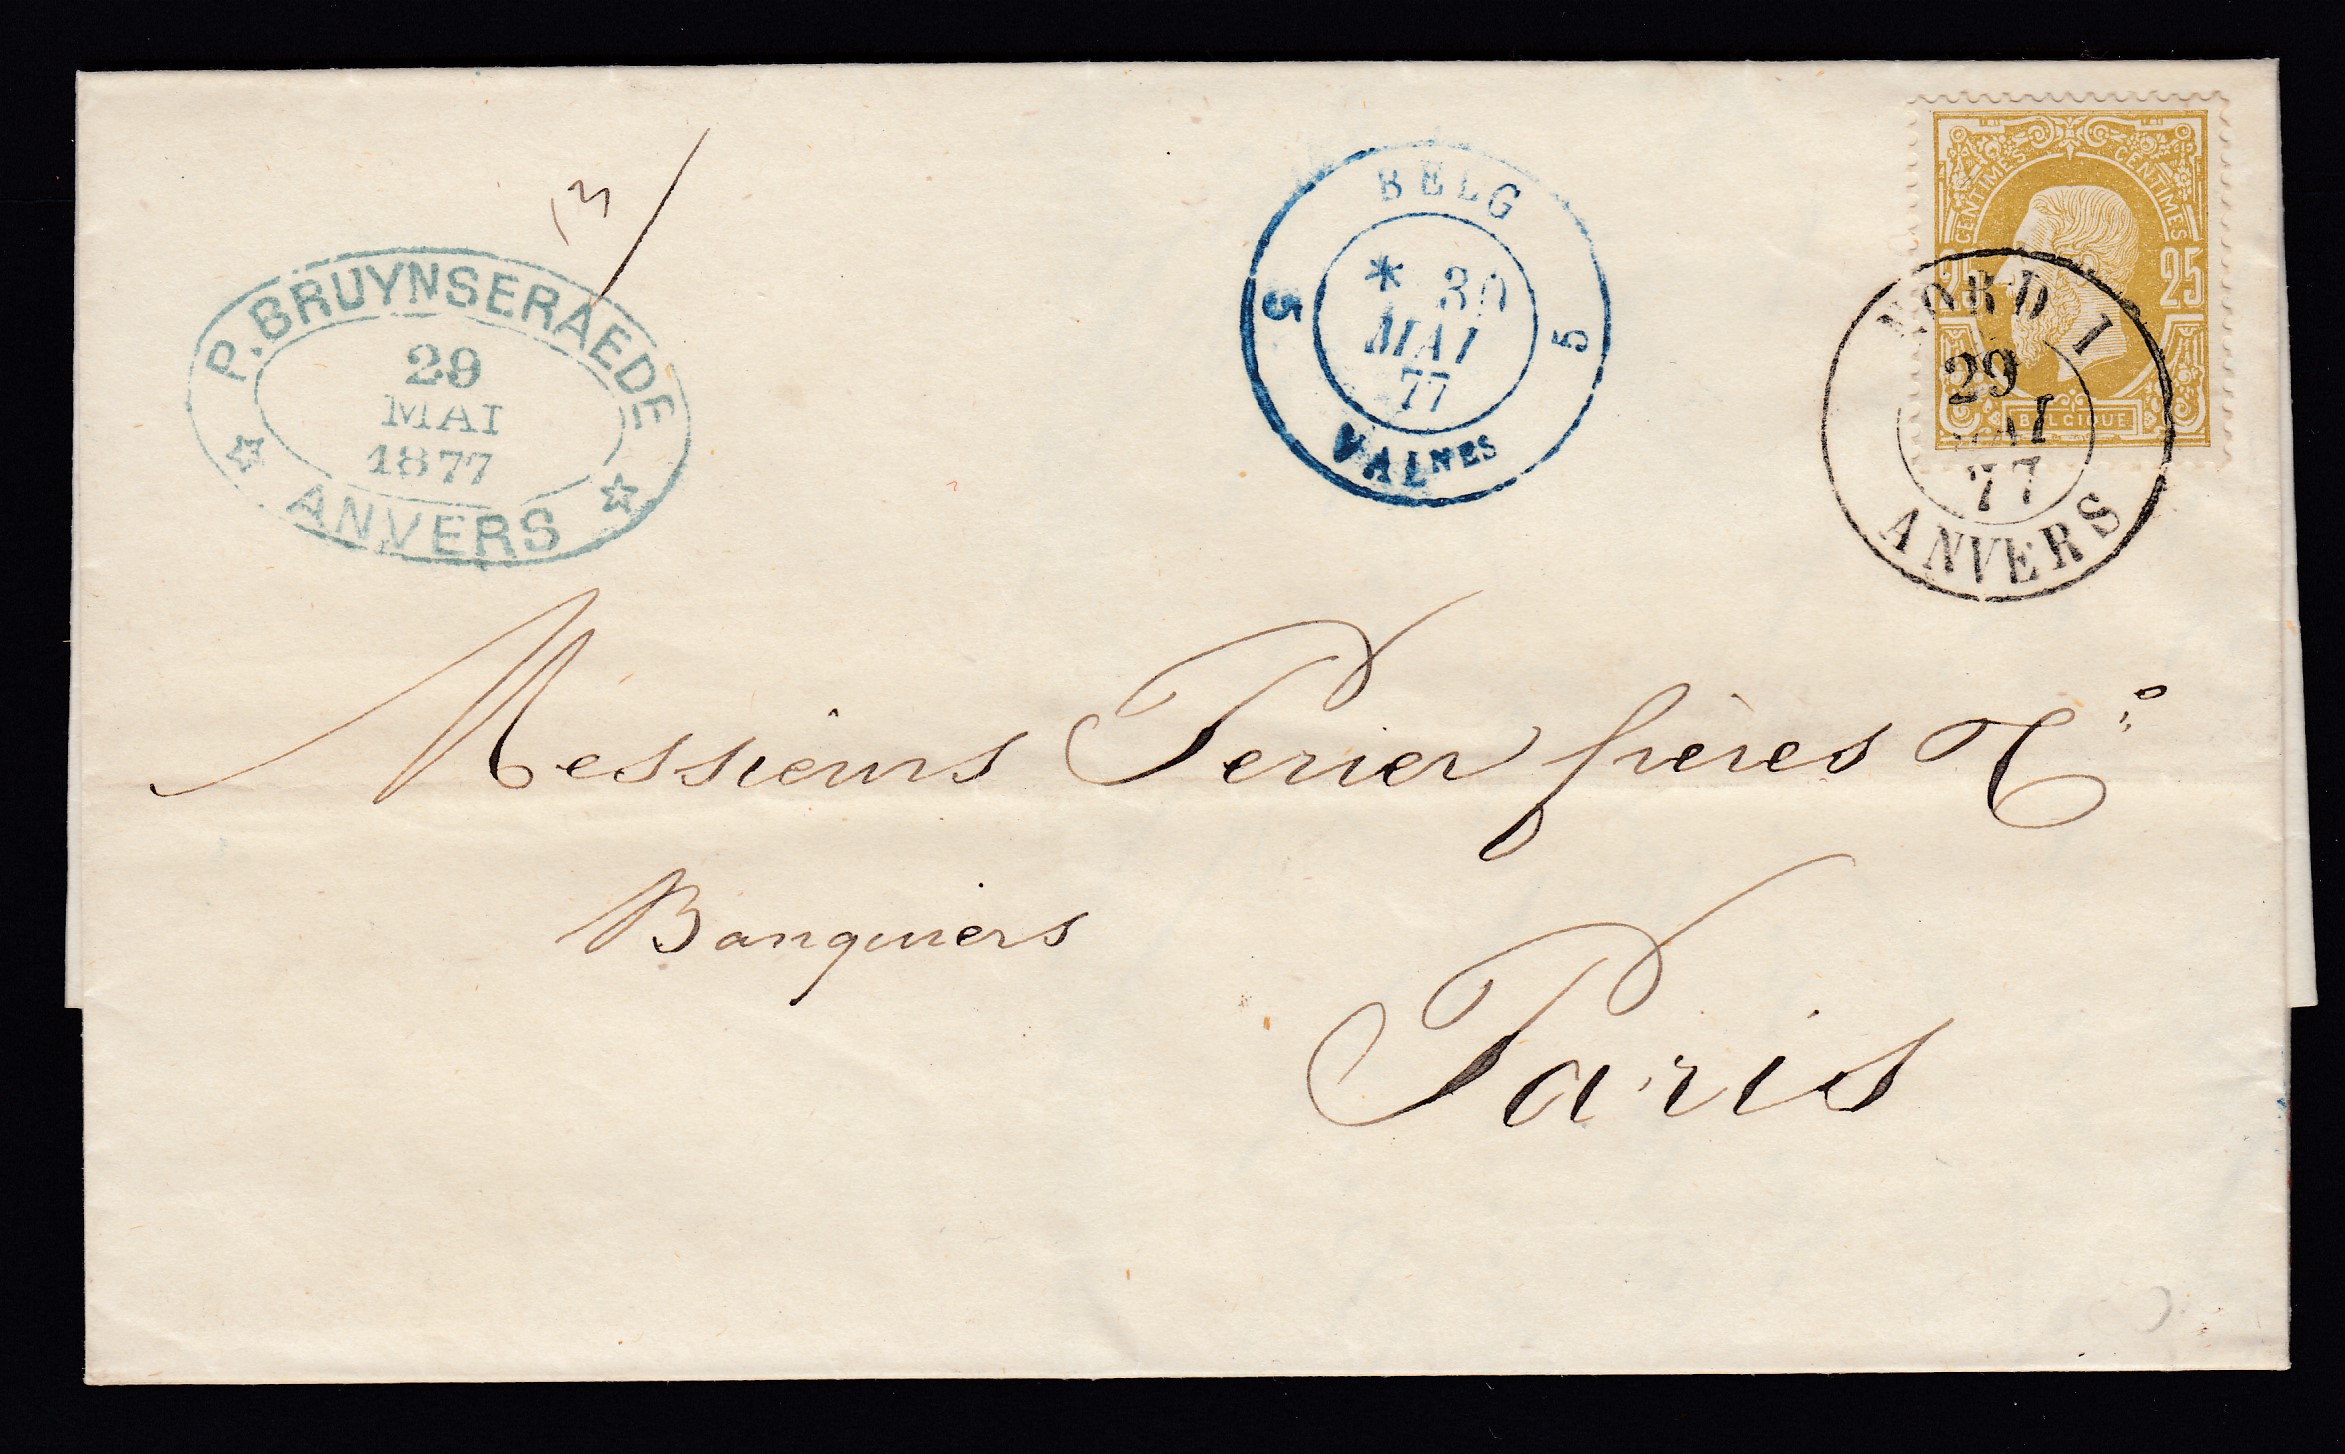 P. BRUYNSERAEDE
29
MAI
1877
ANVERS
BELG
5 * 30 5
MAI
77
VALNES
CENTIMES CENTIMES
25 25
BELGIQUE
NORD 1
29
MAI
77
ANVERS
Messieurs Perier frères & Cie
Banquiers
Paris